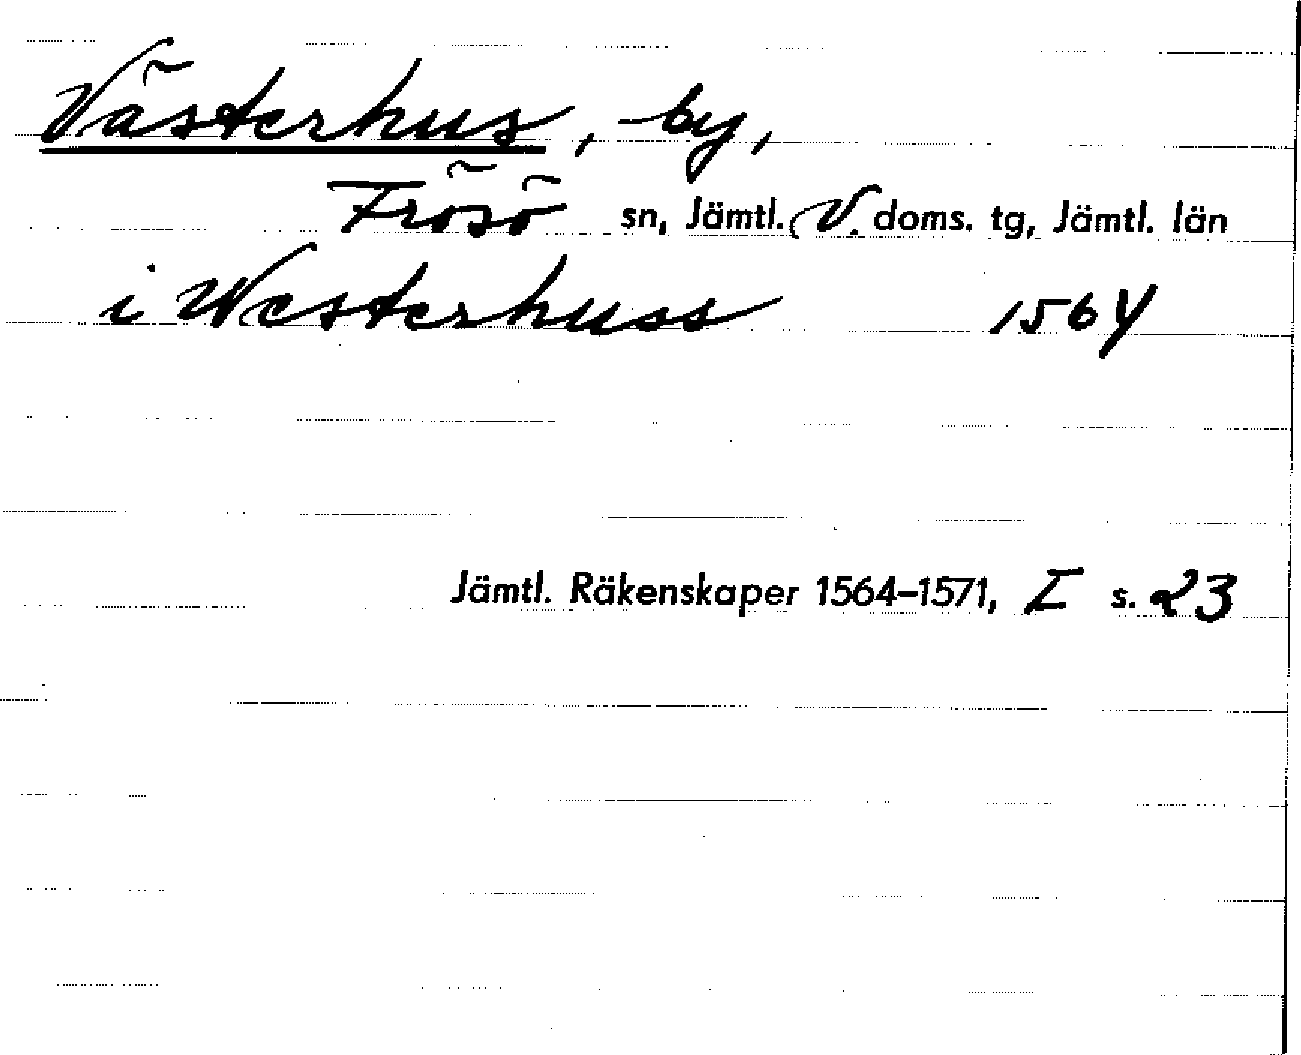 Västerhus, by,
Frösö sn, Jämtl. V. doms. tg, Jämtl. län
i Westerhuss 1564
Jämtl. Räkenskaper 1564–1571, I s. 23